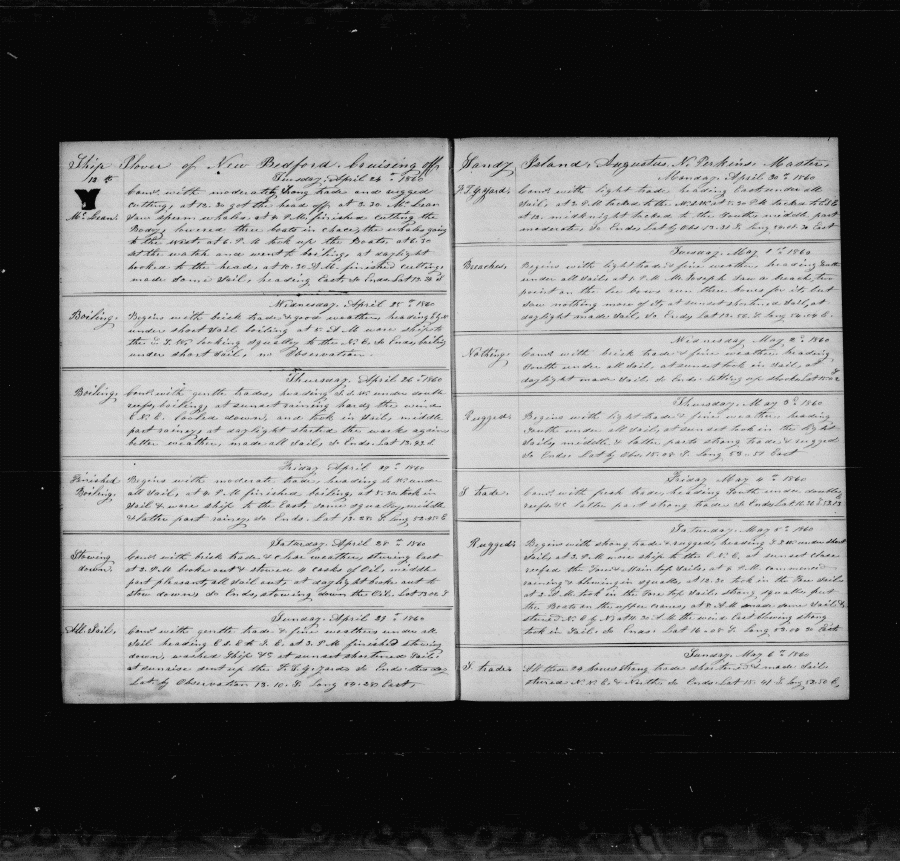 Ship Plover of New Bedford Cruising off
12th
Tuesday, April 24th 1860
Coms. with moderately strong trade and rugged
cutting, at 12.30 got the head off, at 3.30 Mc Lean
Mc Lean. saw sperm whales, at 4 P.M finished cutting the
Body, lowered three boats in chace, the whales going
to the West, at 6. P.M took up the Boats, at 6.30
set the watch and went to boiling, at daylight
hooked to the head, at 10.30 A.M. finished cutting,
made Some Sail, heading East, So Ends, Lat 13.20 S
Wednesday, April 25th 1860
Boiling. Begins with brisk trade & good weather, heading
under short Sail boiling at 5. A M wore ship to
the S.W. looking squally to the N.E. So Ends, boiling
under short Sail, no Observation.
Thursday, April 26th 1860
Boiling. Coms. with gentle trades, heading S.W. under
reefs, boiling, at sunset raining hard, the wind
E.N.E. cooled down, and took in Sail, middle
part rainey, at daylight started the works again
better weather, made all Sail, So Ends. Lat 13.43 S
Friday April 27th 1860
Finished Begins with moderate trade, heading S. W. under
Boiling. all Sail, at 4. P.M finished boiling, at 5.30 took in
Sail & wore ship to the East, some squally, middle
& latter part rainey, So Ends. Lat 13.28 S Long 53.45 E
Saturday, April 28th 1860
Stowing Coms. with brisk trade & clear weather, steering East
down. at 2. P.M broke out & stowed 4 casks of Oil, middle
part pleasant, all Sail out, at daylight broke out to
stow down, So Ends, stowing down the Oil. Lat 13.02 S
Sunday, April 29th 1860
All Sail. Coms. with gentle trade & fine weather under all
Sail heading E.S.E & S.E. at 3. P.M finished stowing
down, washed Ship &c at sunset shortened Sail,
at sunrise sent up the F.T.G. yard, So Ends the day
Lat by Observation 13.10. S. Long 54.20 East,
Sandy Island, Augustus. N. Perkins. Master,
Monday. April 30th 1860
F.T.G yard. Coms. with light trade heading East under all
Sail, at 2. P.M tacked to the
at 12. midnight tacked to the South, middle part
moderate, So Ends Lat by Obs 13.31 S. Long 54.00 East
Tuesday, May 1st 1860
Breaches. Begins with light trade & fine weather, heading South
under all Sail, at 2. P.M. M. Joseph Saw a breach two
point on the lee bow, run three hours for it, but
saw nothing more of it, at sunset shortened Sail, at
daylight made Sail, So Ends, Lat 13.52 S. Long 54.04 E.
Wednesday May 2nd 1860
Nothing. Coms with brisk trade & fine weather heading
South under all Sail, at sunset took in Sail, at
daylight made Sail, So Ends setting up
Thursday, May 3rd 1860
Rugged. Begins with light trade & fine weather, heading
South under all Sail, at sunset took in the light
Sail, middle & latter parts strong trade, & rugged
So Ends Lat by Obs. 15.08 S. Long 53.51 East.
Friday May 4th 1860
S trade. Coms. with fresh trade, heading South under double
reefs, & latter part strong trade, So Ends,
Saturday, May 5th 1860
Rugged. Begins with strong trade & rugged, heading S.S.W under short
Sail, at 2. P.M wore ship to the E.N.E. at sunset close
reefed the Fore & Main top Sails, at 4. P.M. commenced
raining & blowing in squalls, at 12.30 took in the Fore Sail,
at 2. A.M. took in the Fore top Sail, strong squalls, put
the Boats on the upper cranes, at 8. A.M made some Sail &
steered N.E by N at 10.30 A.M the wind East blowing strong
took in Sail, So Ends. Lat 16.08 S. Long 53.08 30 East
Sunday, May 6th 1860
S. trade. All thro 24 hours strong trade, shortened & made Sail
steered N.N.E. & North, So Ends. Lat 15.41 S. Long 52.50 E,